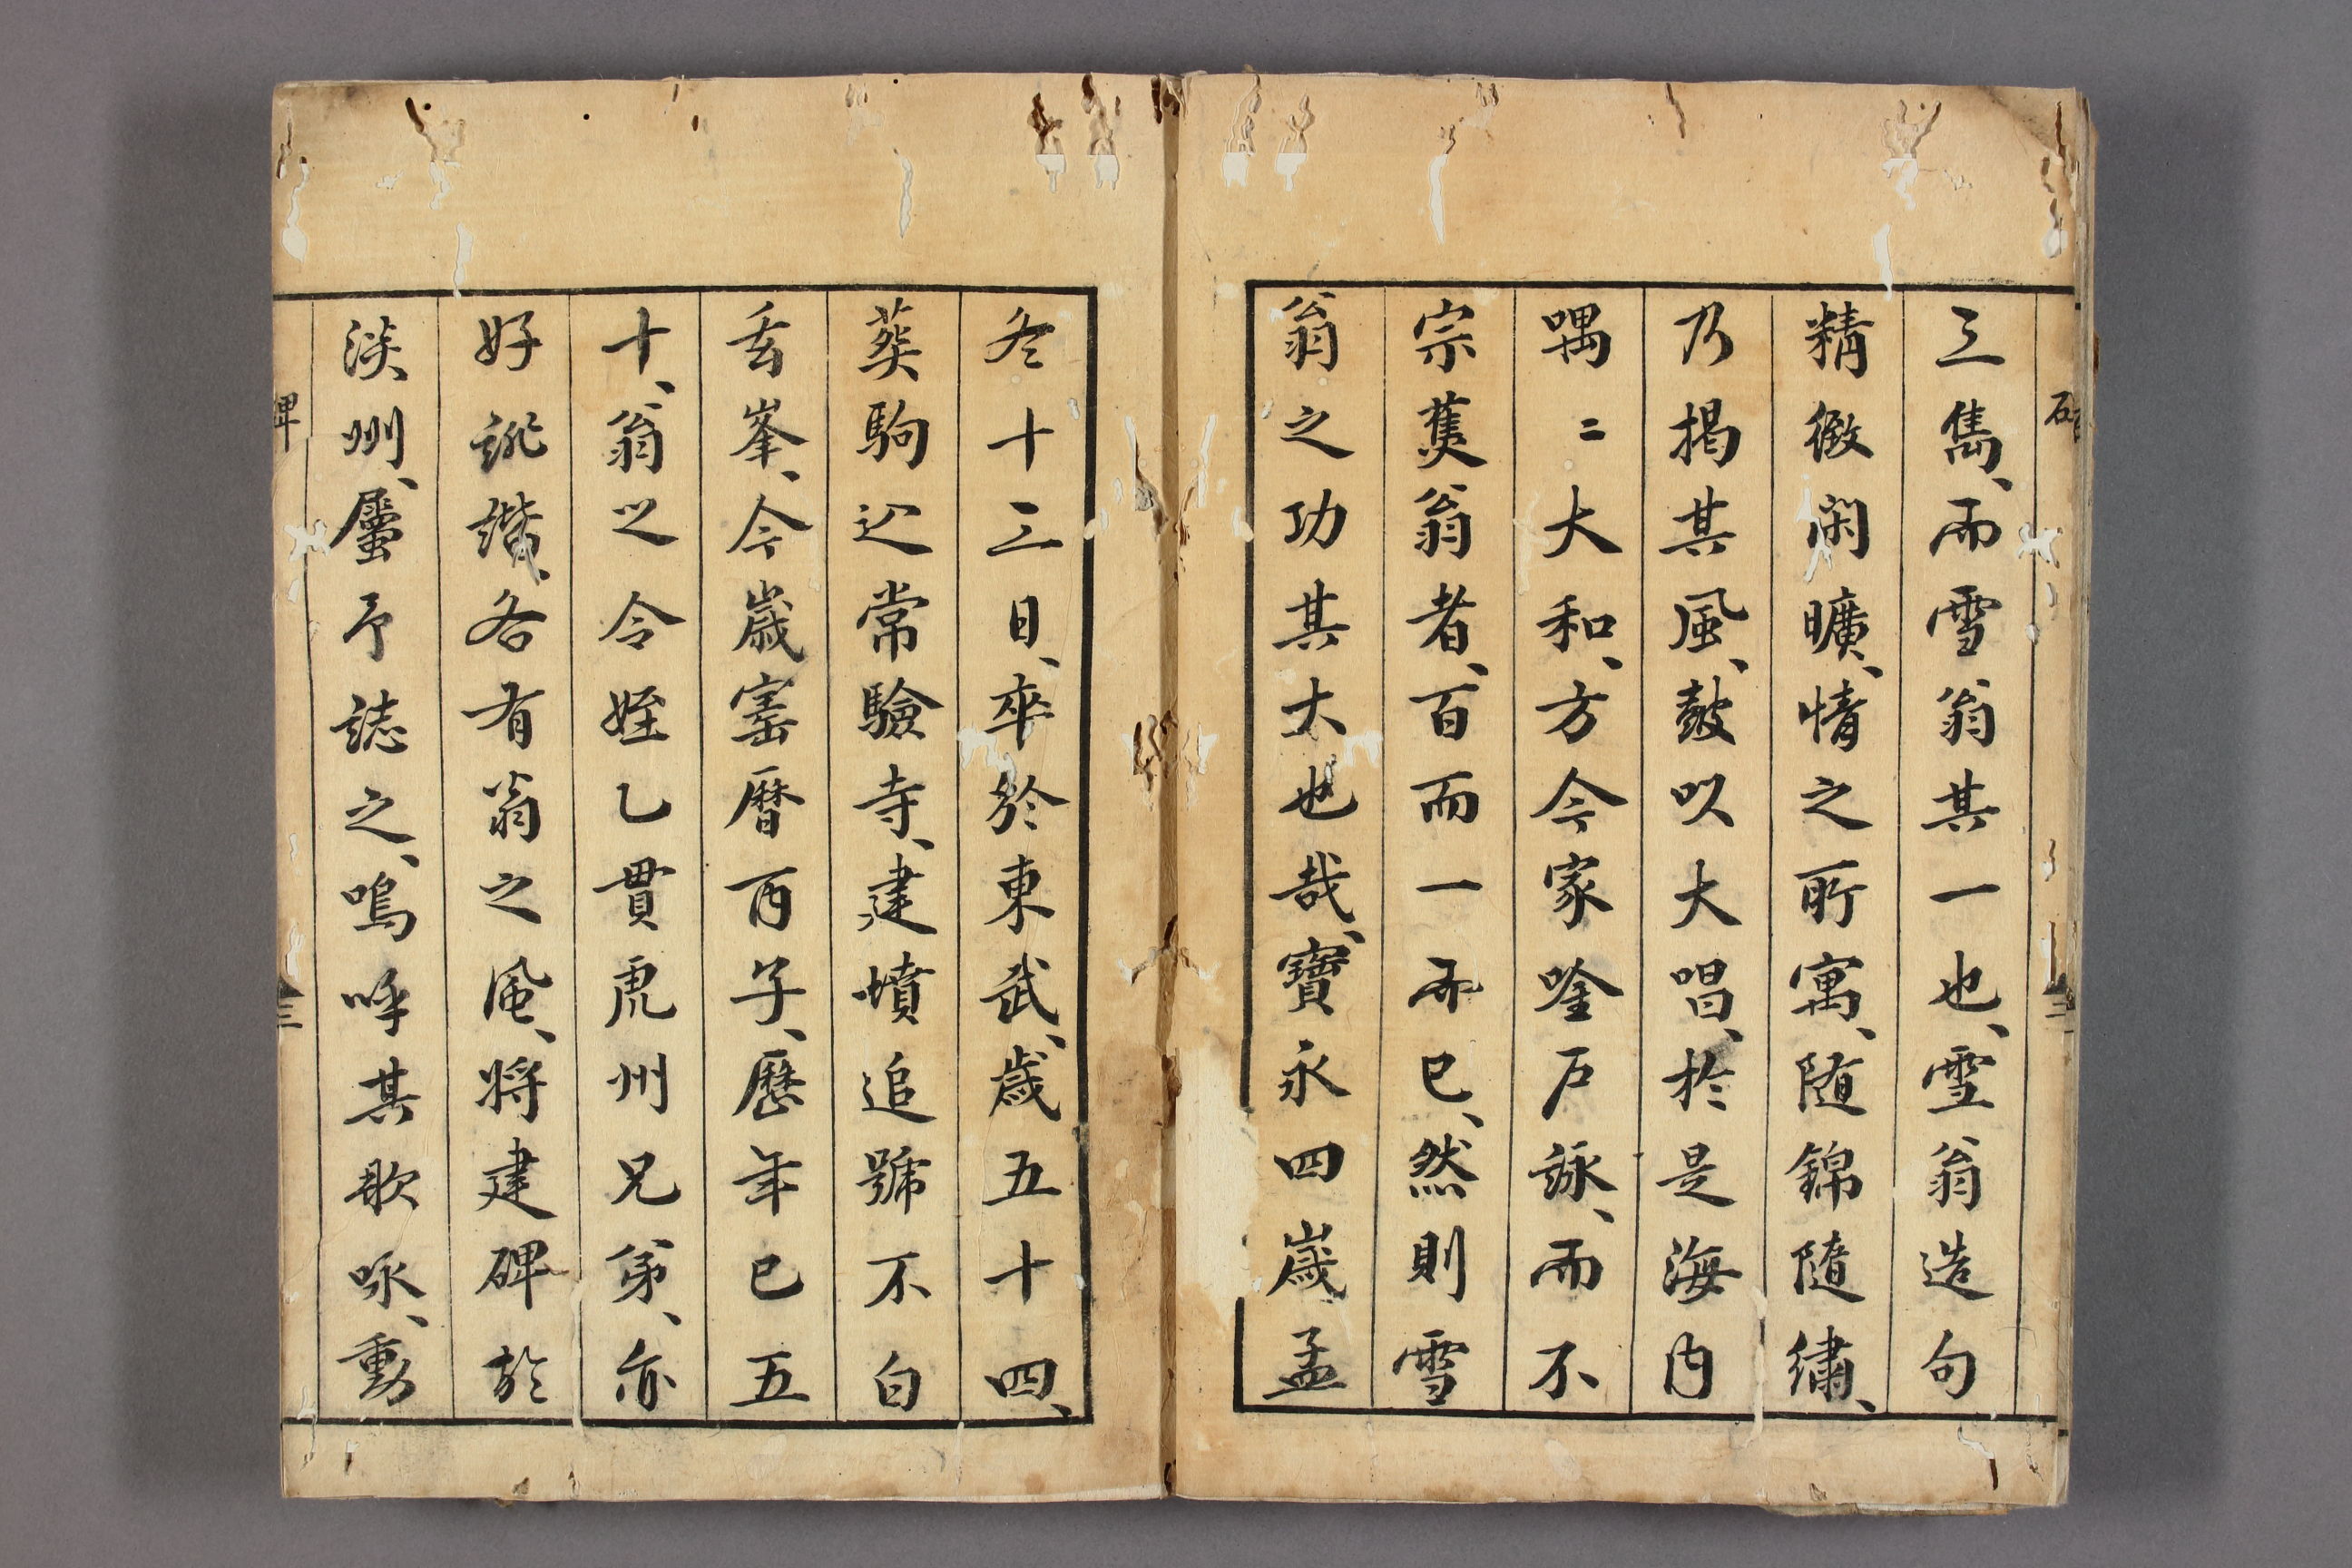 三雋、而雪翁其一也、雪翁造句
精緻閑曠、情之所寓、随錦隨繡、
乃揭其風、皷以大唱、於是海内
喁〻大和、方今家喰戸詠、而不
宗蕉翁者、百而一而已、然則雪
翁之功其大也哉、寶永四歲、孟
冬十三日、卒於東武、歲五十四、
葬駒込常驗寺、建墳追號不白
玄峯、今歲寶曆丙子、歷年已五
十、翁之令姪乙貫虎州兄弟、亦
好誹諧、各有翁之風、将建碑於
淡州、屬予誌之、嗚呼其歌咏、動
碑
三